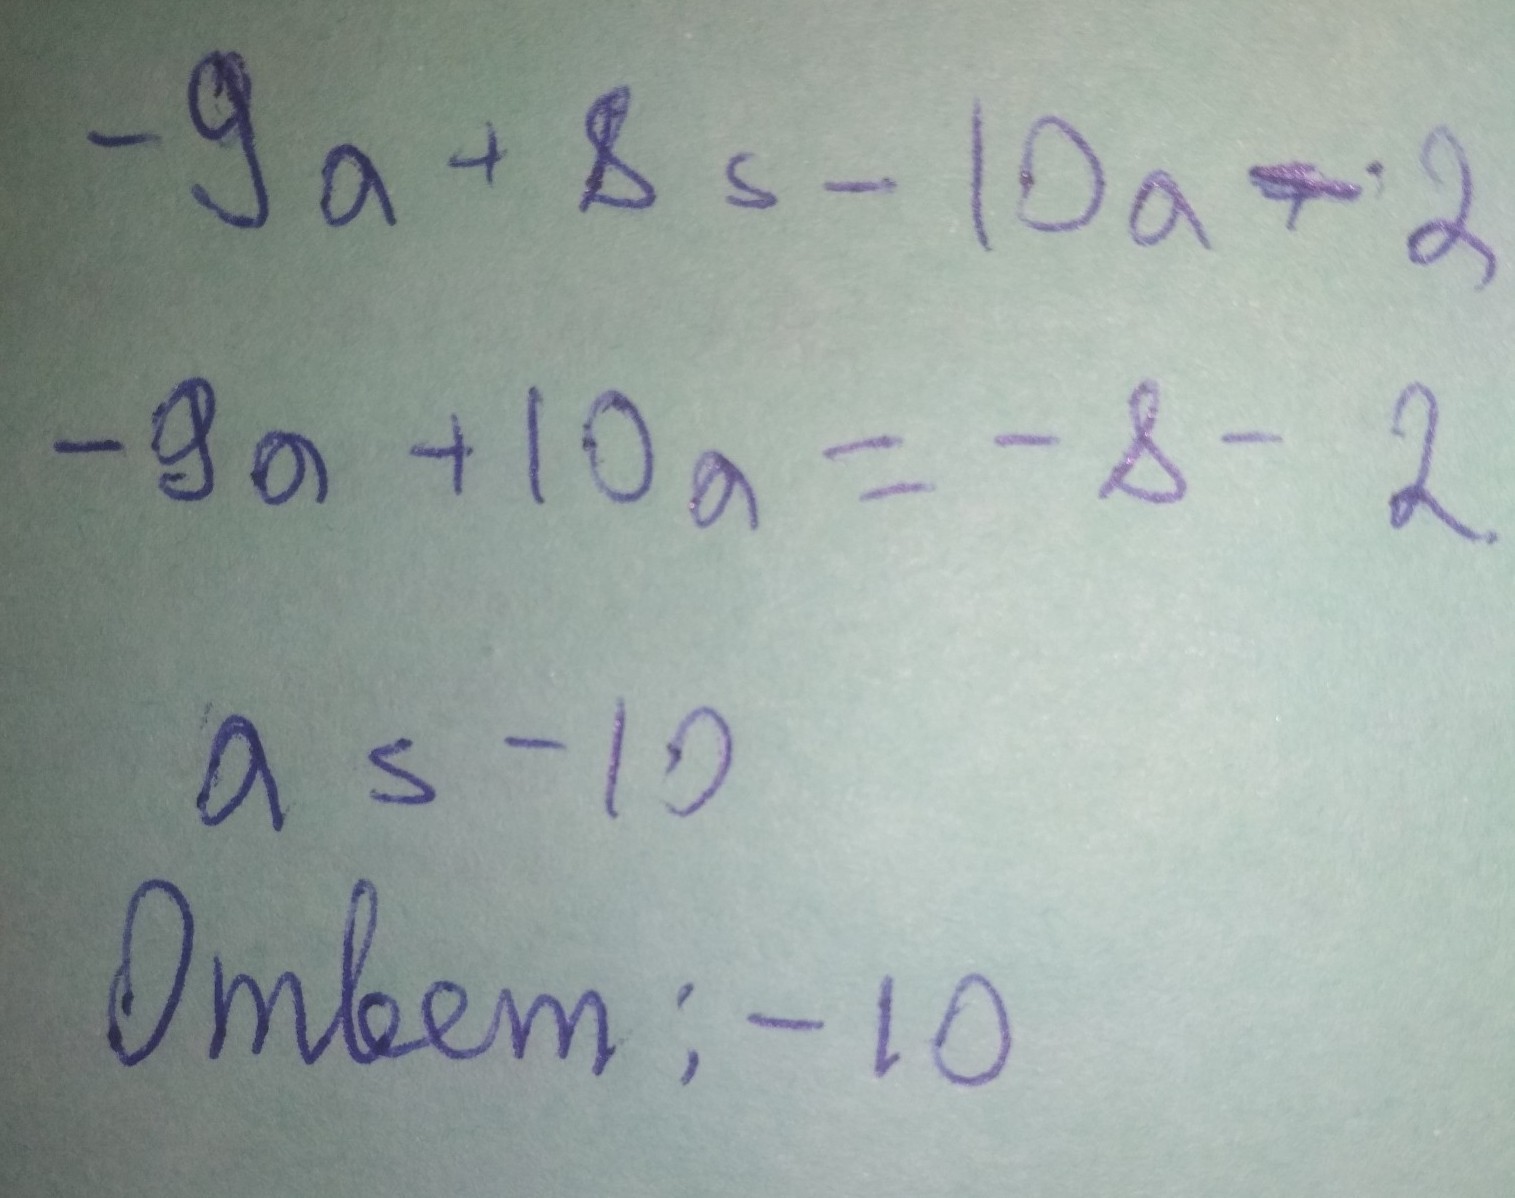 -9a + 8 = -10a - 2
-9a + 10a = -8 - 2
a = -10
Ответ: -10